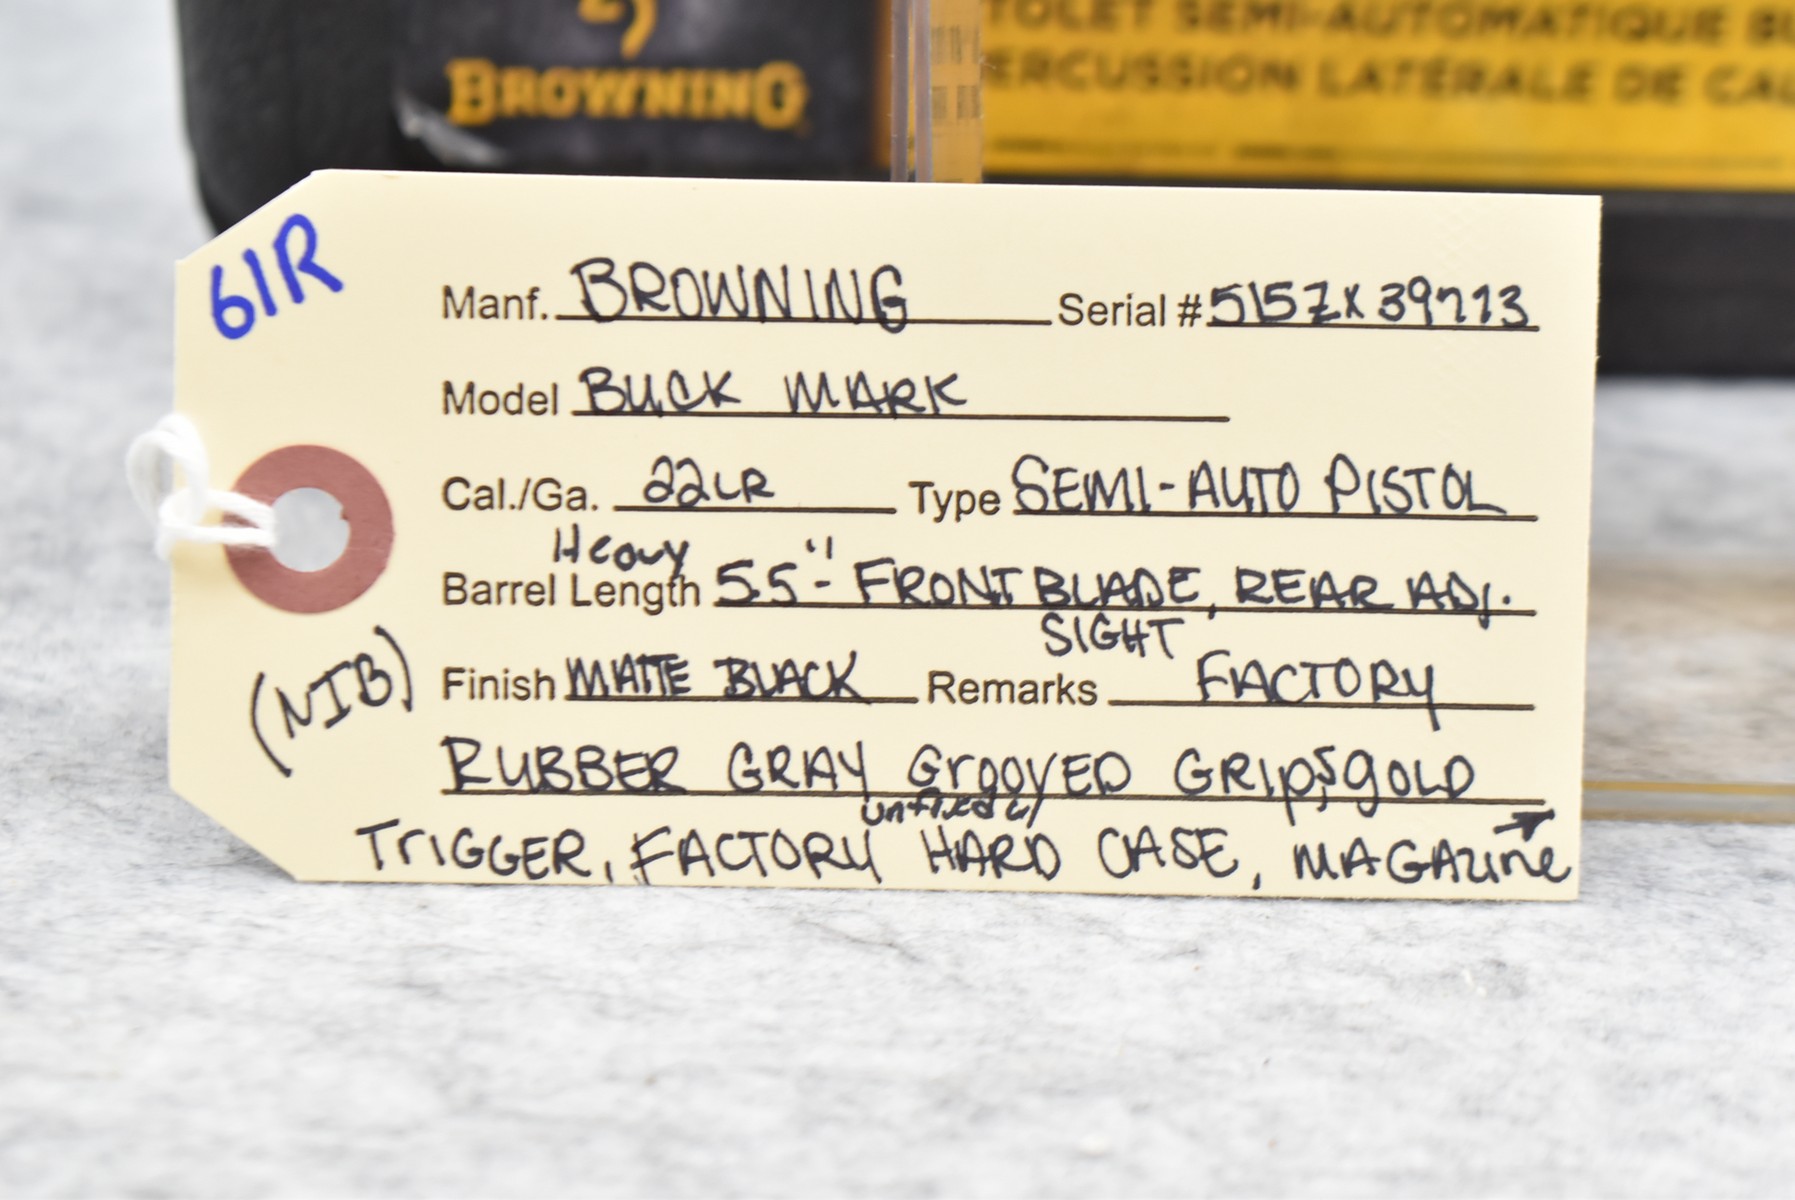 BROWNING
TOLET SEMI-AUTOMATIQUE BU
PERCUSSION LATÉRALE DE CAL
61R
Manf. BROWNING Serial # 515ZX39713
Model BUCK MARK
Cal./Ga. 22LR Type SEMI-AUTO PISTOL
Heavy
Barrel Length 5.5"- FRONT BLADE, REAR ADJ.
SIGHT
(NIB)
Finish MATTE BLACK Remarks FACTORY
RUBBER GRAY GrooVED GRIps, gOLD
unfired w/
TrIGGER, FACTORY HARD CASE, MAGAzine